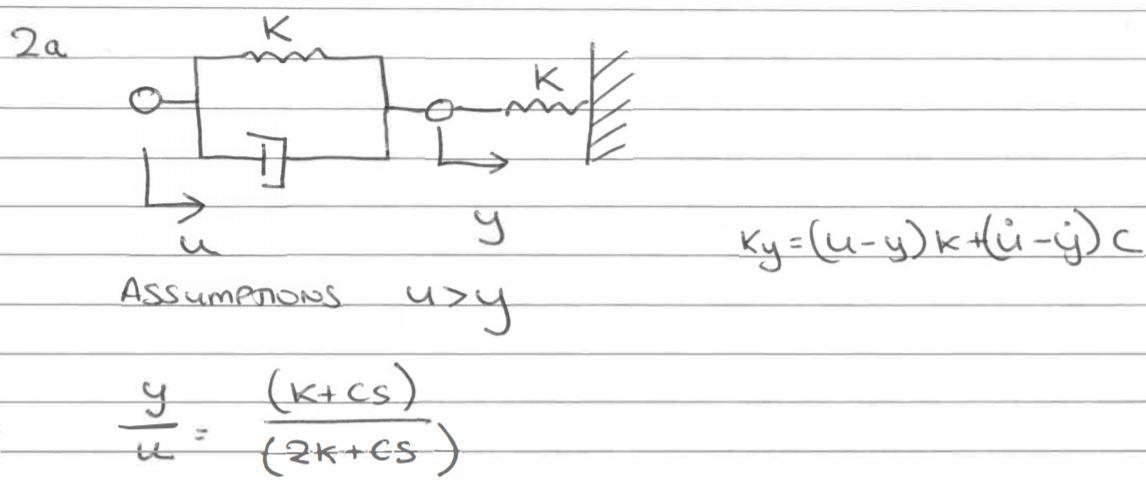 2a
K
K
u
y
Ky=(u-y)K+(u̇-ẏ)C
ASSUMPTIONS u>y
y/u = (K+CS)/(2K+CS)